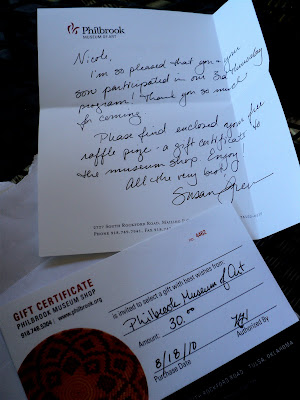 Philbrook
MUSEUM OF ART
Nicole,
I'm so pleased that you & your
son participated in our 3rd Thursday
program! Thank you so much
for coming.
Please find enclosed your free
raffle prize - a gift certificate to
the museum shop. Enjoy!
All the very best,
Susan Green
2727 SOUTH ROCKFORD ROAD,
PHONE 918.749.7941
GIFT CERTIFICATE
PHILBROOK MUSEUM SHOP
918.748.5304 www.philbrook.org
is invited to select a gift with best wishes from:
Philbrook Museum of Art
Amount: 30.00
8/18/10
Purchase Date
Authorized By
ROCKFORD ROAD, TULSA, OKLAHOMA